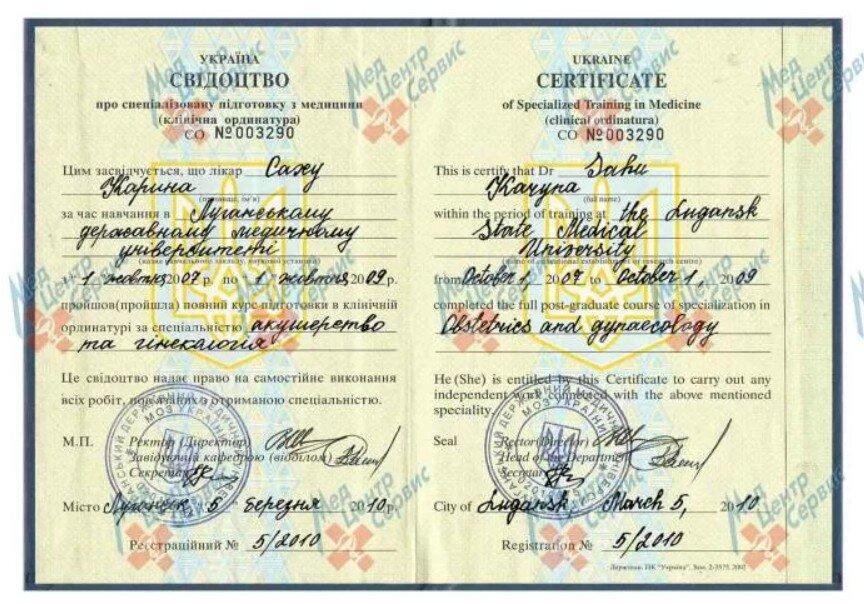 УКРАЇНА
СВІДОЦТВО
про спеціалізовану підготовку з медицини
(клінічна ординатура)
СО №003290
Цим засвідчується, що лікар Саху
Карина
(прізвище, ім'я)
за час навчання в Луганському
державному медичному
університеті
(назва навчального закладу, наукової установи)
з 1 жовтня 2007 р. по 1 жовтня 2009 р.
пройшов(пройшла) повний курс підготовки в клінічній
ординатурі за спеціальністю акушерство
та гінекологія
Це свідоцтво надає право на самостійне виконання
всіх робіт, пов'язаних з отриманою спеціальністю.
М.П. Ректор (Директор)
Завідувач кафедрою (відділом)
Секретар
Місто Луганськ "5" березня 2010 р.
Реєстраційний № 5/2010
UKRAINE
CERTIFICATE
of Specialized Training in Medicine
(clinical ordinatura)
СО №003290
This is certify that Dr Sahu
Karyna
(full name)
within the period of training at the Lugansk
State Medical
University
(name of educational establishment or research centre)
from October 1, 2007 to October 1, 2009
completed the full post-graduate course of specialization in
Obstetrics and gynaecology
He (She) is entitled by this Certificate to carry out any
independent work connected with the above mentioned
speciality.
Seal Rector(Director)
Head of the Department
Secretary
City of Lugansk March 5, 2010
Registration № 5/2010
МедЦентрСервис